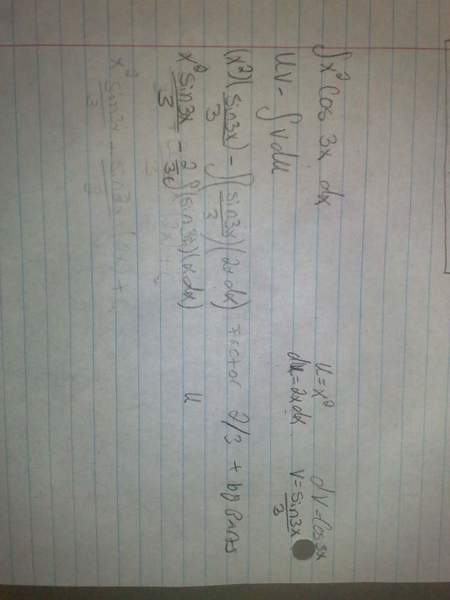 ∫x² Cos 3x dx
u = x²  dv = Cos 3x
du = 2x dx  v = sin3x/3
uv - ∫v du
(x²)(sin3x/3) - ∫(sin3x/3)(2x dx) Factor 2/3 + by parts
x² sin3x/3 - 2/3 ∫(sin3x)(x dx)  u
x² sin3x/3 - sin3x/3